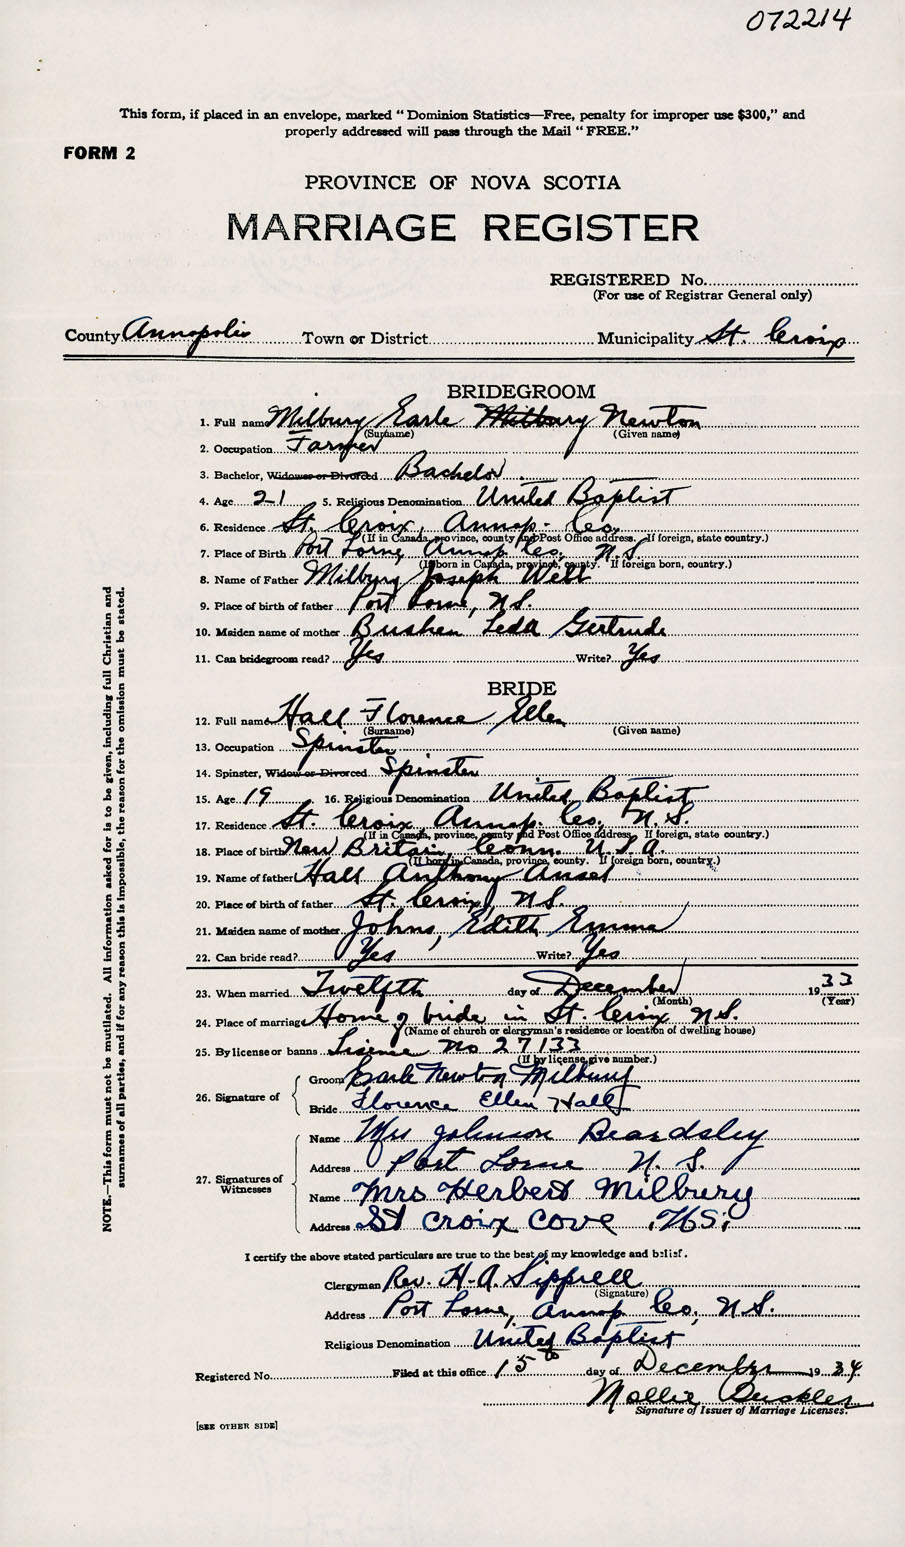 072214
This form, if placed in an envelope, marked “Dominion Statistics—Free, penalty for improper use $300,” and
properly addressed will pass through the Mail “FREE.”
FORM 2
PROVINCE OF NOVA SCOTIA
MARRIAGE REGISTER
REGISTERED No.
(For use of Registrar General only)
County Annapolis Town or District Municipality St. Croix
BRIDEGROOM
1. Full name Milbury Earle Milbury Newton
(Surname) (Given name)
2. Occupation Farmer
3. Bachelor, Widower or Divorced Bachelor
4. Age 21 5. Religious Denomination United Baptist
6. Residence St. Croix, Annap. Co.
(If in Canada, province, county and Post Office address. If foreign, state country.)
7. Place of Birth Port Lorne, Annap. Co. N.S.
(If born in Canada, province, county. If foreign born, country.)
8. Name of Father Milbury Joseph Welt
9. Place of birth of father Port Lorne, N.S.
10. Maiden name of mother Leda Gertrude
11. Can bridegroom read? Yes Write? Yes
BRIDE
12. Full name Hall Florence Ellen
(Surname) (Given name)
13. Occupation Spinster
14. Spinster, Widow or Divorced Spinster
15. Age 19 16. Religious Denomination United Baptist
17. Residence St. Croix Annap. Co. N.S.
(If in Canada, province, county and Post Office address. If foreign, state country.)
18. Place of birth New Britain, Conn. U.S.A.
(If born in Canada, province, county. If foreign born, country.)
19. Name of father Hall Anthony Ansel
20. Place of birth of father St. Croix, N.S.
21. Maiden name of mother Johns, Edith Emma
22. Can bride read? Yes Write? Yes
23. When married Twelfth day of December 1933
(Month) (Year)
24. Place of marriage Home of bride in St. Croix N.S.
(Name of church or clergyman's residence or location of dwelling house)
25. By license or banns Lisense No 27133
(If by license, give number.)
26. Signature of
Groom Earle Newton Milbury
Bride Florence Ellen Hall
27. Signatures of Witnesses
Name Mrs Johnson Beardsley
Address Port Lorne N. S.
Name Mrs Herbert Milbury
Address St Croix Cove N.S.
I certify the above stated particulars are true to the best of my knowledge and belief.
Clergyman Rev. H. A. Sipprell
(Signature)
Address Port Lorne, Annap Co. N.S.
Religious Denomination United Baptist
Registered No. Filed at this office 15th day of December 1934
Mollie
Signature of Issuer of Marriage Licenses.
[SEE OTHER SIDE]
NOTE.—This form must not be mutilated. All information asked for is to be given, including full Christian and
surnames of all parties, and if for any reason this is impossible, the reason for the omission must be stated.